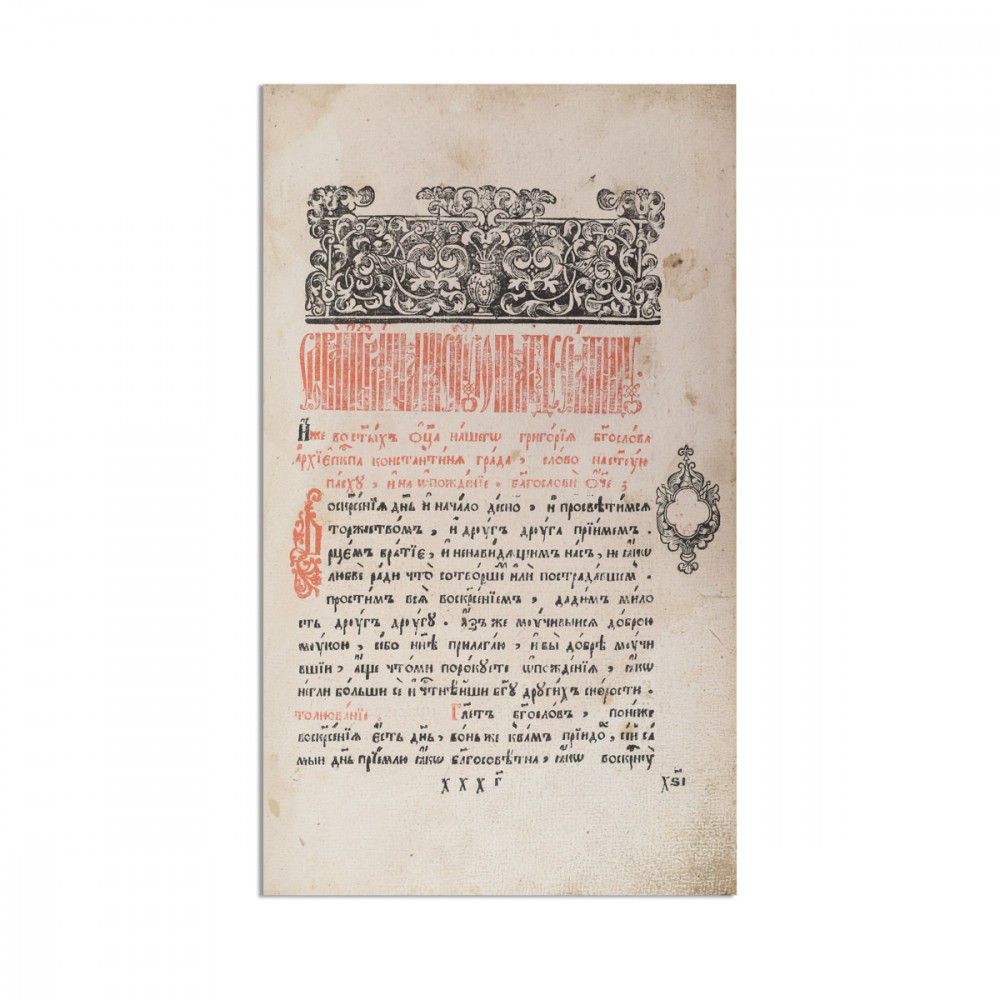 И҆́же во ст҃ы́хъ ѻ҆ц҃а̀ нашегѡ григо́рїѧ бг҃осло́ва
а҆рхїе҆пкⷭ҇па константи́нѧ гра́да, сло́во на ст҃ꙋ́ю
па́схꙋ, и҆ на ѡ҆пожде́нїе. благослови ѻ҆́ч҃е
Воскрⷭ҇е́нїѧ де́нь и҆ нача́ло де́сно, и҆ просвѣти́мсѧ
торжество́мъ, и҆ дрꙋ́гъ дрꙋ́га прїи́мемъ.
рце́мъ бра́тїе, и҆ ненави́дѧщимъ на́съ, не ꙗ҆́кѡ
любвѐ ра́ди что̀ сотво́рше и҆лѝ пострада́вшем.
прости́мъ всѧ̀ воскрⷭ҇е́нїемъ, дади́мъ ми́ло
сть дрꙋ́гъ дрꙋ́гꙋ. а҆́зъ же моучи́выисѧ до́брою
моу́кою, се́бо нн҃ѣ прилага́ю, и҆ вы̀ до́брѣ моучи́
вшїи, а҆́ще что̀ ми порокꙋ́ете ѡ҆пожде́нїѧ, ꙗ҆́кѡ
не́гли бо́льши сѐ и҆ чтⷭ҇нѣ́йши бг҃ꙋ дрꙋги́хъ ско́рости.
толкова́нїе. Гл҃етъ бг҃осло́въ, поне́же
воскрⷭ҇е́нїѧ є҆́сть де́нь, во́нь же к̾ва́мъ прїидо́хъ, сі́й са́
мыи дн҃ь прїе́млю ꙗ҆́кѡ благосовѣ́тна, ꙗ҆́кѡ воскрⷭ҇нꙋ
х х х г҃ хѕ҃і